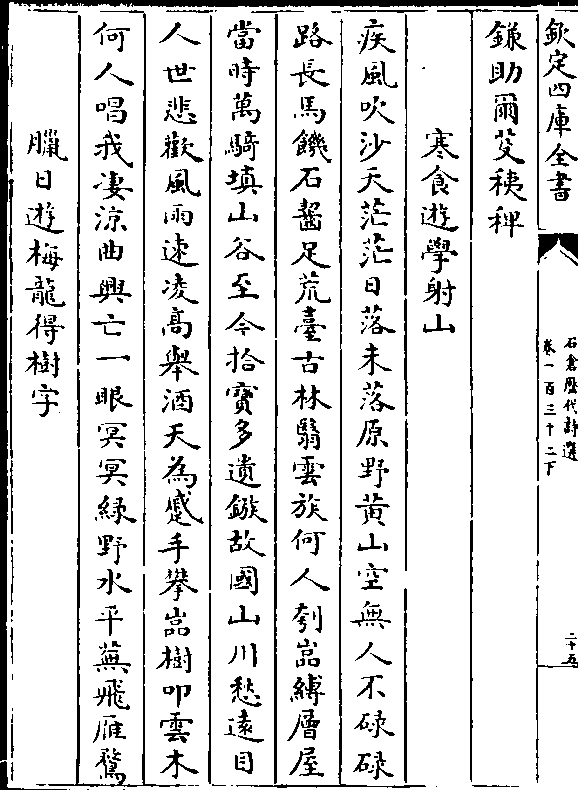 欽定四庫全書
石倉歷代詩選
卷一百三十二下
二十五
鎌助爾芟稊稗
寒食遊學射山
疾風吹沙天茫茫日落未落原野黄山空無人不碌碌
路長馬饑石齧足荒臺古林翳雲族何人刳嵓縛層屋
當時萬騎填山谷至今拾寳多遺鏃故國山川愁遠目
人世悲歡風雨速凌髙舉酒天為蹙手攀嵓樹叩雲木
何人唱我凄涼曲興亡一眼冥冥緑野水平蕪飛雁鶩
臘日遊梅龍得樹字